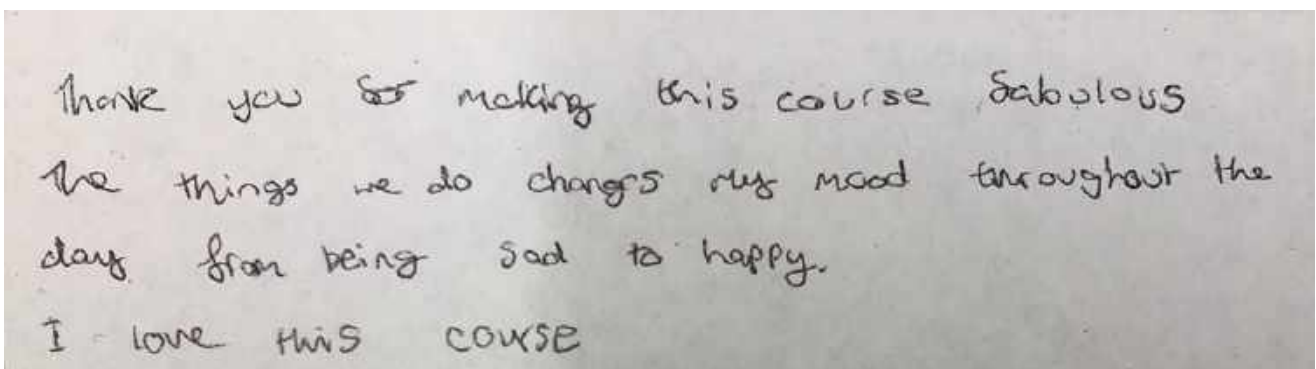 Thank you for making this course fabulous
The things we do changes my mood throughout the
day from being sad to happy.
I love this course